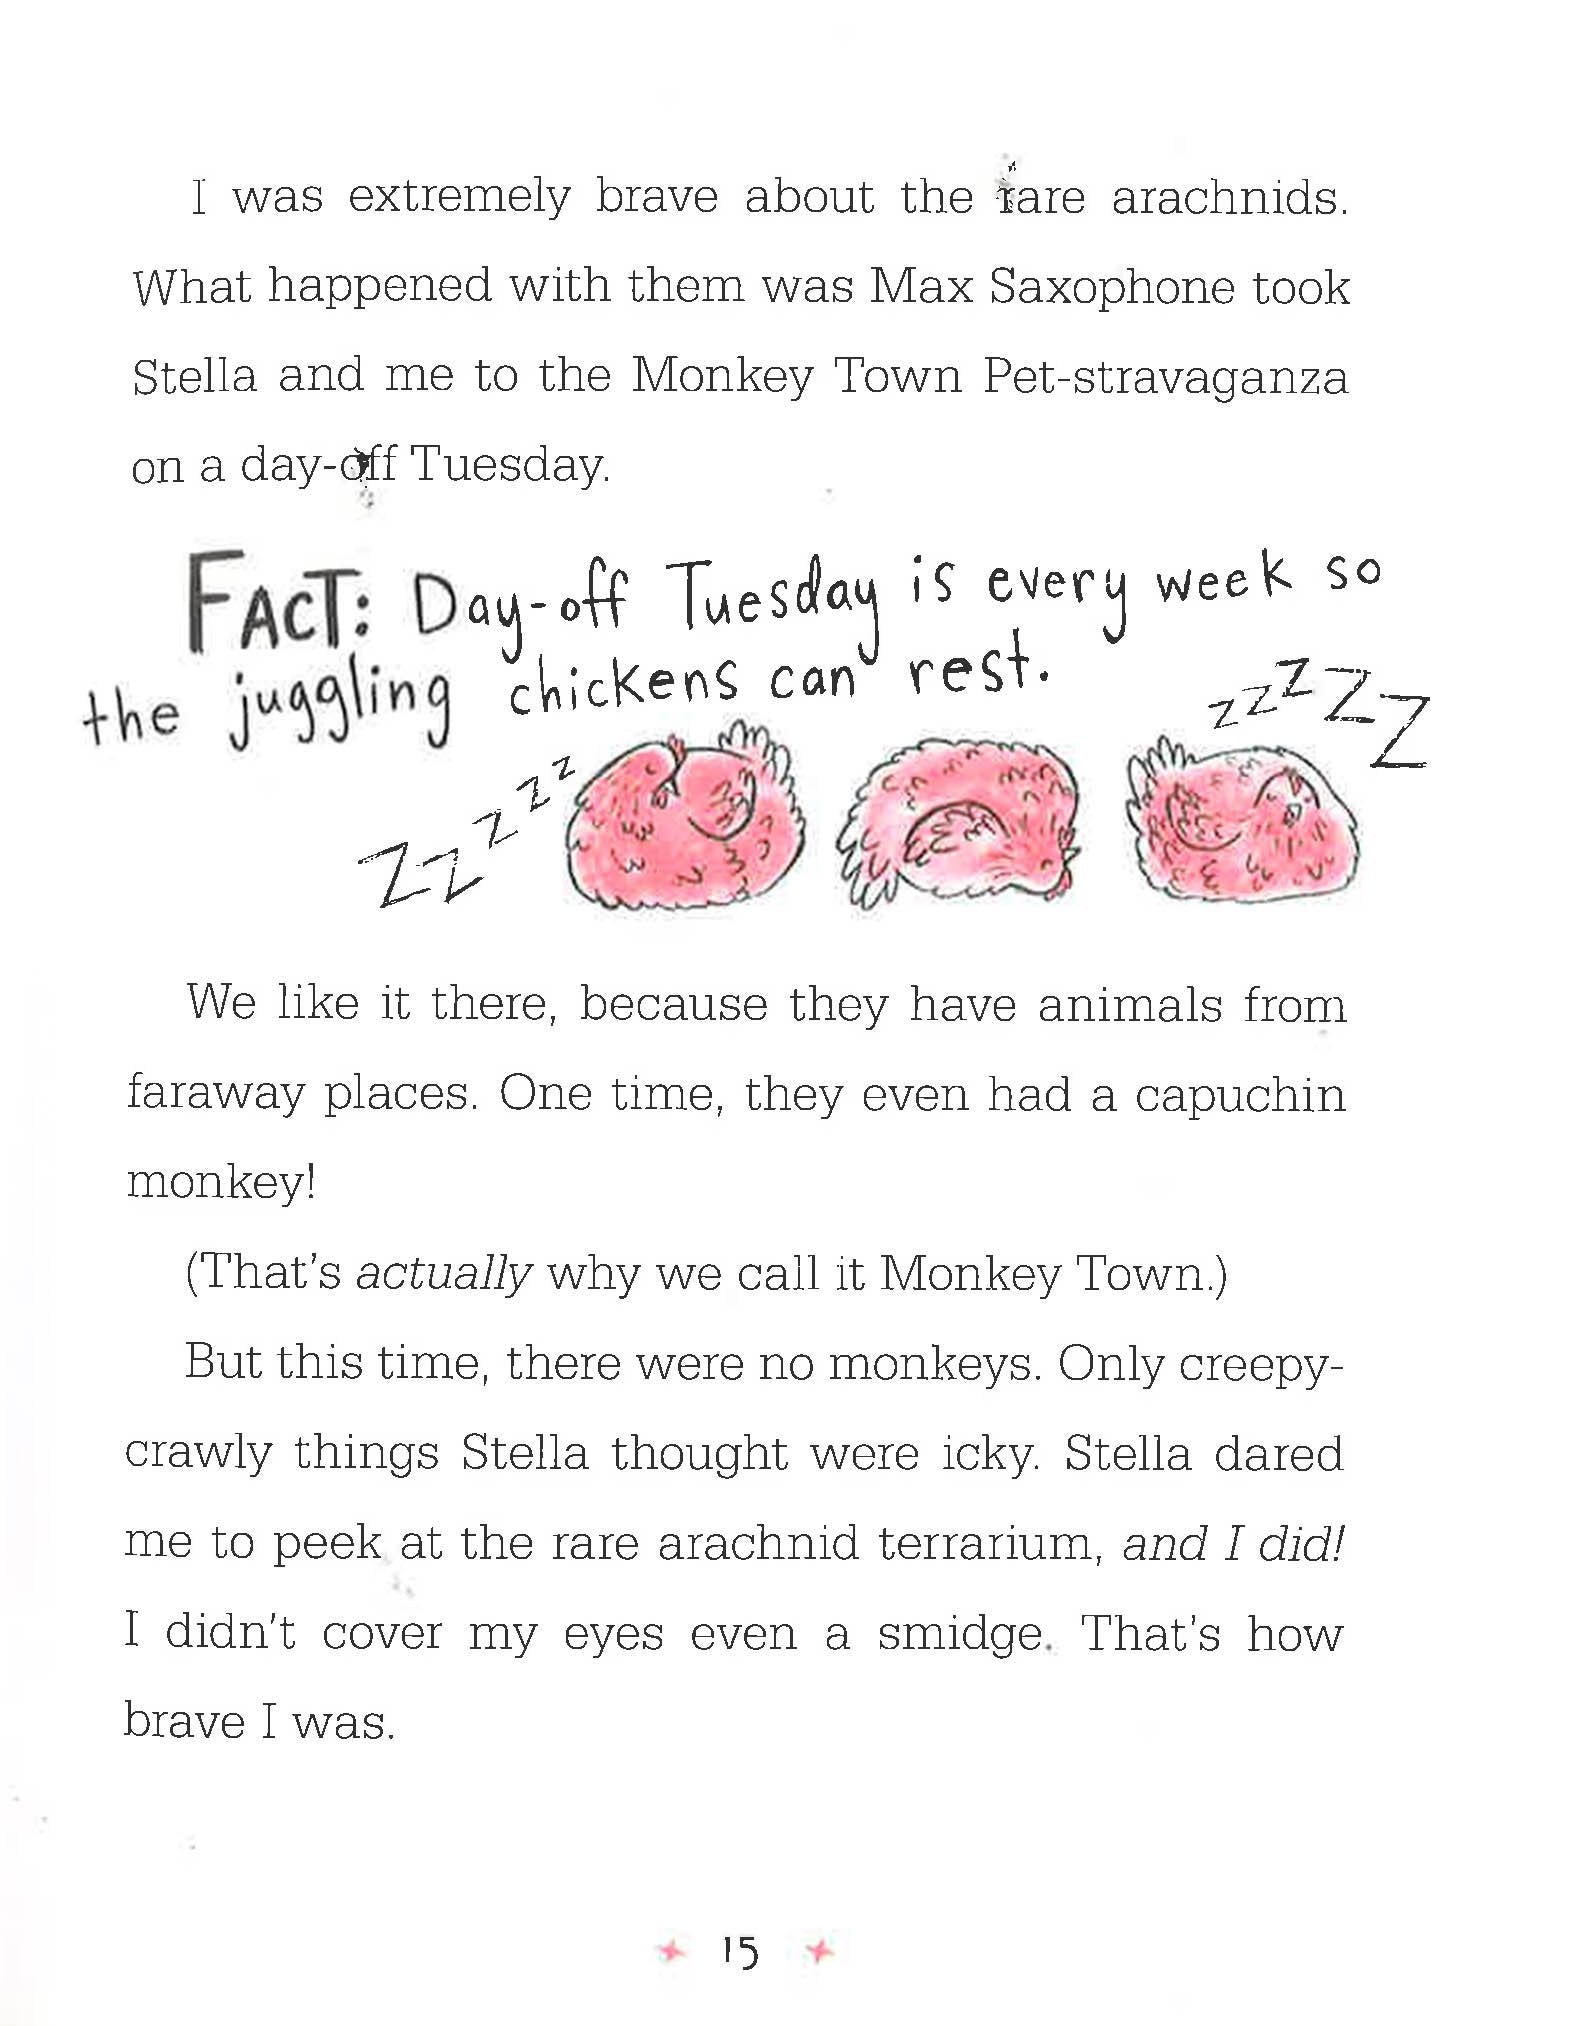 I was extremely brave about the rare arachnids.
What happened with them was Max Saxophone took
Stella and me to the Monkey Town Pet-stravaganza
on a day-off Tuesday.
FACT: Day-off Tuesday is every week so
the juggling chickens can rest.
zzzZZ
ZZzzz
We like it there, because they have animals from
faraway places. One time, they even had a capuchin
monkey!
(That's actually why we call it Monkey Town.)
But this time, there were no monkeys. Only creepy-
crawly things Stella thought were icky. Stella dared
me to peek at the rare arachnid terrarium, and I did!
I didn't cover my eyes even a smidge. That's how
brave I was.
15